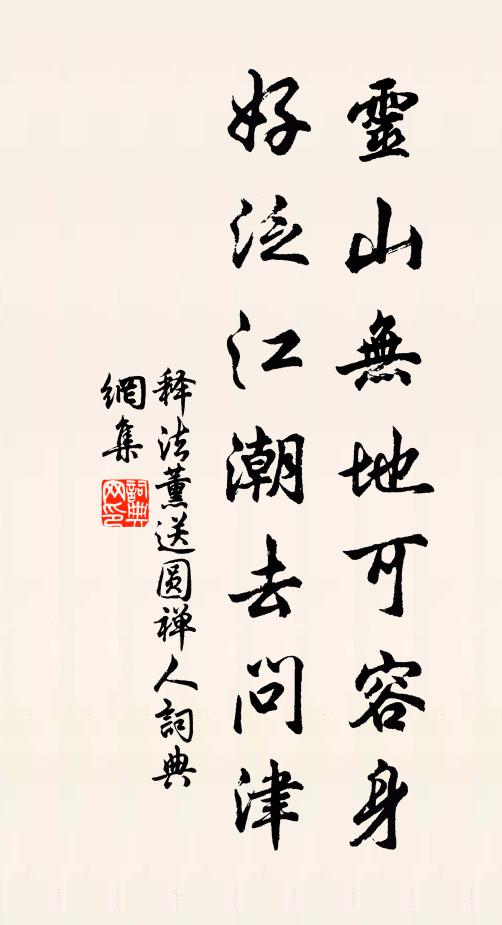 靈山無地可容身
好泛江潮去問津
释法薰送圆禅人詞典
網集
詞典网印